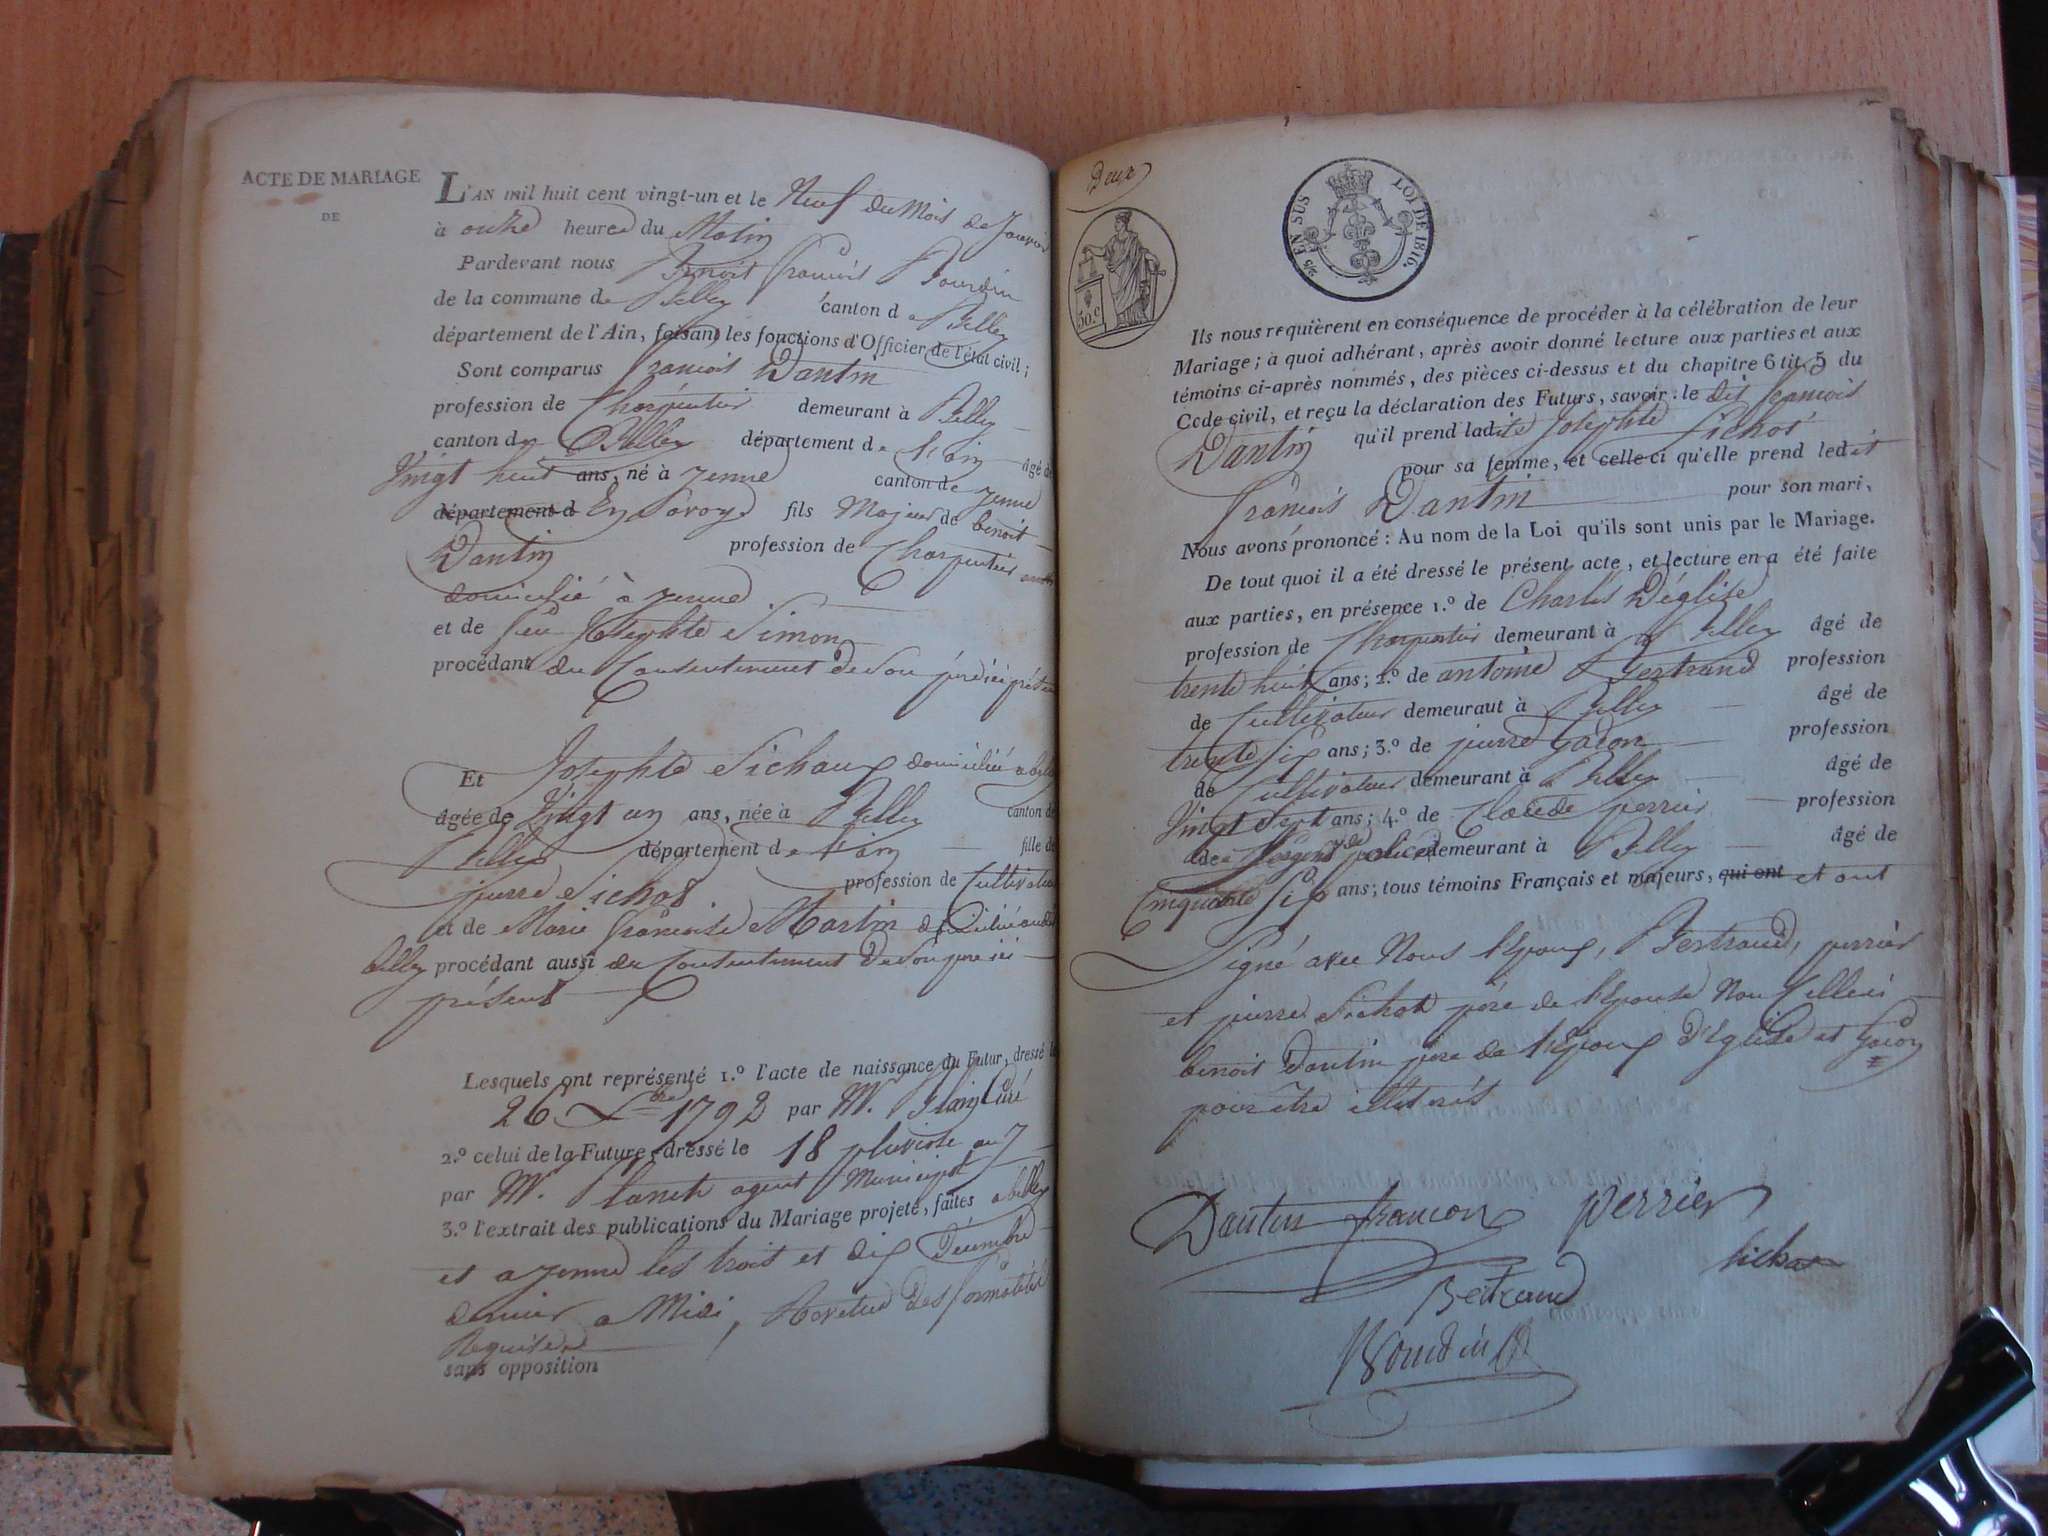 ACTE DE MARIAGE
DE
L'AN mil huit cent vingt-un et le Neuf du Mois de Janvier
à onze heures du Matin
Pardevant nous Benoit François Bourdin
de la commune de Belley canton de Belley
département de l'Ain, faisant les fonctions d'Officier de l'état civil;
Sont comparus françois Dantin
profession de Charpentier demeurant à Belley
canton de Belley département de l'ain âgé de
Vingt huit ans, né à yenne canton de yenne
département d En Savoye fils Majeur de benoit
Dantin profession de Charpentier
domicilié à yenne
et de feue Josephte Simon
procédant du Consentement de Son père ici présent
Et Josephte Sichoux domiciliée a belley
âgée de Vingt un ans, née à Belley canton de
Belley département de l'ain fille de
pierre Sichos profession de Cultivateur
et de Marie françoise Martin domiciliée audit
belley procédant aussi du Consentement de Son père ici
présent
Lesquels ont représenté 1.º l'acte de naissance du Futur, dressé le
26 Xbre 1792 par M. Blain Curé
2.º celui de la Future, dressé le 18 pluviose an 7
par M. Planch agent Municipal
3.º l'extrait des publications du Mariage projeté, faites a belley
et a yenne les trois et dix Décembre
dernier a Midi, Revetue des formalités
Requises
sans opposition
Deux
50.c
2/5 EN SUS LOI DE 1816.
Ils nous requièrent en conséquence de procéder à la célébration de leur
Mariage; à quoi adhérant, après avoir donné lecture aux parties et aux
témoins ci-après nommés, des pièces ci-dessus et du chapitre 6 tit. 5 du
Code civil, et reçu la déclaration des Futurs, savoir: le dit françois
Dantin qu'il prend ladite Josephte Sichos
pour sa femme, et celle-ci qu'elle prend ledit
françois Dantin pour son mari,
Nous avons prononcé: Au nom de la Loi qu'ils sont unis par le Mariage.
De tout quoi il a été dressé le présent acte, et lecture en a été faite
aux parties, en présence 1.º de Charles Déglise
profession de Charpentier demeurant à Belley âgé de
trente huit ans; 2.º de antoine Bertrand profession
de Cultivateur demeurant à Belley âgé de
trente Six ans; 3.º de pierre Gacon profession
de Cultivateur demeurant à Belley âgé de
Vingt Sept ans; 4.º de Claude perrier profession
de Sergent de police demeurant à Belley âgé de
Cinquante Six ans; tous témoins Français et majeurs, qui ont et ont
Signé avec Nous l'époux, Bertrand, perrier
et pierre Sichos père de l'épouse Non Celleci
benoit Dantin père de l'époux D'Eglise et Gacon
pour être illiterés
Dantin francois perrier
Sichos
Bertrand
Bourdin